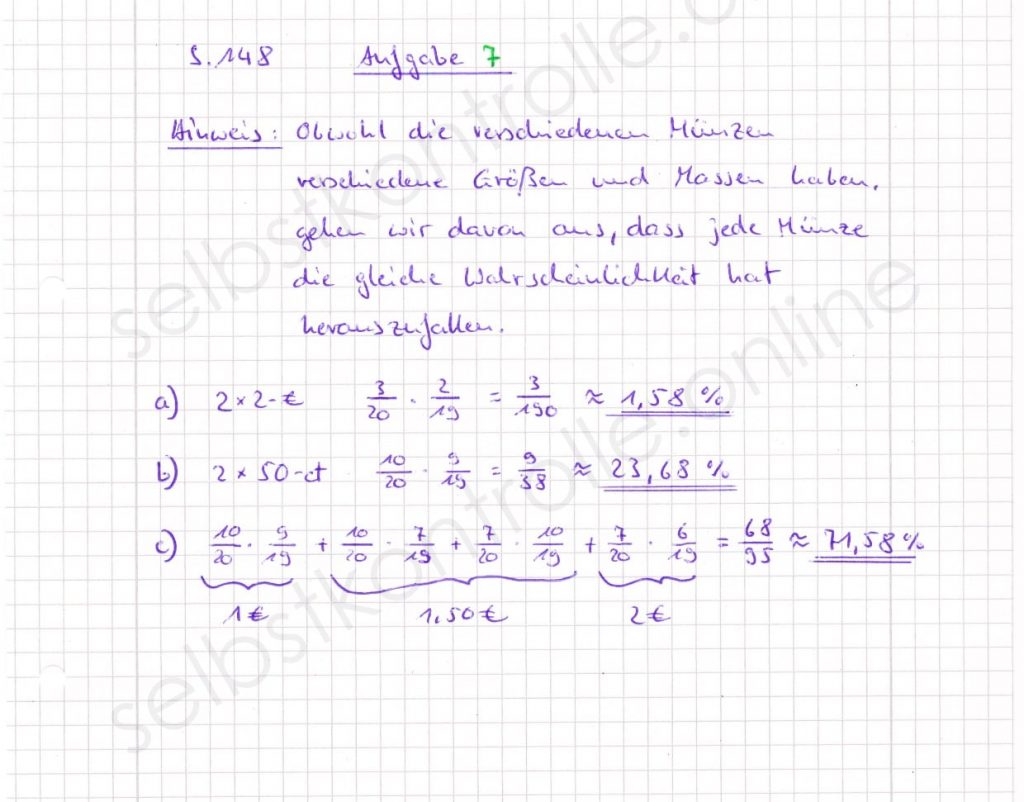 S. 148 Aufgabe 7
Hinweis: Obwohl die verschiedenen Münzen
verschiedene Größen und Massen haben,
gehen wir davon aus, dass jede Münze
die gleiche Wahrscheinlichkeit hat
herauszufallen.
a) 2 × 2-€ 3/20 · 2/19 = 3/190 ≈ 1,58 %
b) 2 × 50-ct 10/20 · 9/19 = 9/38 ≈ 23,68 %
c) 10/20 · 9/19 + 10/20 · 7/19 + 7/20 · 10/19 + 7/20 · 6/19 = 68/95 ≈ 71,58 %
1 € 1,50 € 2 €
selbstkontrolle.online
selbstkontrolle.online